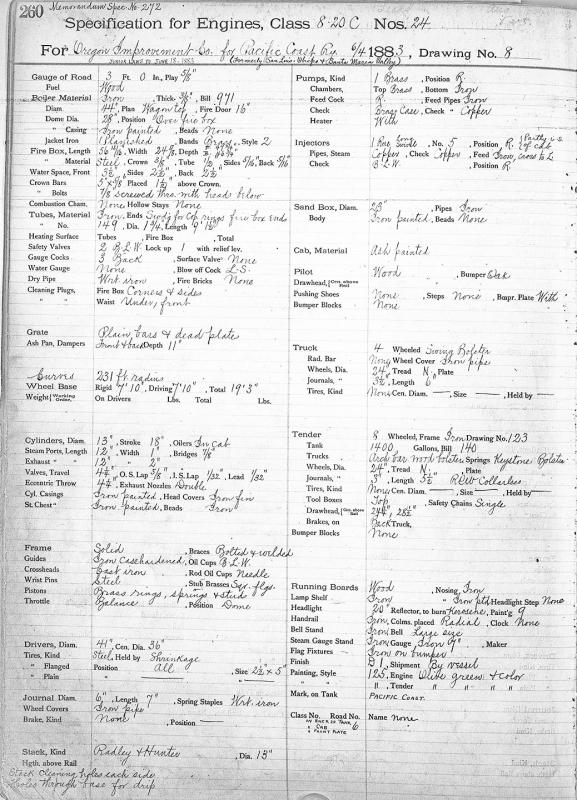 260 Memorandum Spec. No. 272
Specification for Engines, Class 8-20 C Nos. 24
For Oregon Improvement Co. for Pacific Coast Ry. 6/4 1883, Drawing No. 8
JUNIOR LAWS TO JUNE 18-1883 (Formerly San Luis Obispo & Santa Maria Valley)
Gauge of Road 3 Ft. 0 In., Play 5/8"
Fuel Wood
Boiler Material Iron, Thick. 3/8", Bill 971
Diam. 44", Plan Wagon top, Fire Door 16"
Dome Dia. 28", Position Over fire box
" Casing Iron painted, Beads None
Jacket Iron Planished, Bands Brass, Style 2
Fire Box, Length 56 , Width 24 , Depth
" Material Steel, Crown 3/8", Tube 1/2, Sides 5/16, Back 5/16
Water Space, Front 3½, Sides 2½", Back 2½"
Crown Bars 5" x 5/8 Placed 1½" above Crown.
" Bolts 7/8 Screwed thro. with heads below
Combustion Cham. None Hollow Stays None
Tubes, Material Iron. Ends Swdg for Cop. rings fire box ends
" No. 149, Dia. 1¾, Length 9'
Heating Surface Tubes , Fire Box , Total
Safety Valves 2 B.L.W. Lock up 1 with relief lev.
Gauge Cocks 3 Back , Surface Valve None
Water Gauge None , Blow off Cock L.S.
Dry Pipe Wrt iron , Fire Bricks None
Cleaning Plugs, Fire Box Corners & sides
Waist Under, front
Grate Plain bars & dead plate
Ash Pan, Dampers Front & back Depth 11"
Curves 231 ft. radius
Wheel Base Rigid 7'10", Driving 7'10", Total 19'3"
Weight Working Order. On Drivers Lbs. Total Lbs.
Cylinders, Diam. 13", Stroke 18", Oilers In cab
Steam Ports, Length 12", Width 1", Bridges 7/8"
Exhaust " " 12" " 2"
Valves, Travel 4¼", O.S. Lap 5/8", I.S. Lap 1/32", Lead 1/32"
Eccentric Throw 4¼", Exhaust Nozzles Double
Cyl. Casings Iron painted, Head Covers Iron fin
St. Chest" Iron painted, Beads Iron
Frame Solid , Braces Bolted & welded
Guides Iron Casehardened, Oil Cups B.L.W.
Crossheads Cast iron , Rod Oil Cups Needle
Wrist Pins Steel , Stub Brasses Sqr. flgs.
Pistons Brass rings, springs & stud
Throttle Balance , Position Dome
Drivers, Diam. 41", Cen. Dia. 36"
Tires, Kind Steel, Held by Shrinkage
" Flanged Position All , Size 2½" x 5"
" Plain " — " —
Journal Diam. 6", Length 7", Spring Staples Wrt. iron
Wheel Covers Iron pipe
Brake, Kind None , Position —
Stack, Kind Radley & Hunter , Dia. 13"
Hgth. above Rail
Stack Cleaning holes each side
Holes through base for drip
Pumps, Kind 1 Brass , Position R.
Chambers, Top Brass , Bottom Iron
Feed Cock R. , Feed Pipes Iron
Check Brass Case, Check " Copper
Heater With
Injectors 1 Rue Long Swivle, No. 5 , Position R. 
Pipes, Steam Copper, Check Copper, Feed Iron, cross to L
Check B.L.W. , Position R.
Sand Box, Diam. 23" , Pipes Iron
Body Iron painted, Beads None
Cab, Material Ash painted
Pilot Wood , Bumper Oak
Drawhead, Cen. above Rail
Pushing Shoes None , Steps None , Bmpr. Plate With
Bumper Blocks None
Truck 4 Wheeled Swing Bolster
Rad. Bar None Wheel Cover Iron pipe
Wheels, Dia. 24" Tread N. Plate
Journals, " 3½", Length 6"
Tires, Kind None Cen. Diam. — , Size — , Held by —
Tender 8 Wheeled, Frame Iron Drawing No. 123
Tank 1400 Gallons, Bill 140
Trucks Arch bar wood bolster Springs Keystone Bolster
Wheels, Dia. 24" Tread N. Plate
Journals, " 3", Length 5½ "
Tires, Kind None Cen. Diam. — , Size — , Held by —
Tool Boxes Top , Safety Chains Single
Drawhead, Cen. above Rail 24¼", 28½"
Brakes, on Back Truck,
Bumper Blocks None
Running Boards Wood , Nosing Iron
Lamp Shelf Iron " Iron ptd. Headlight Step None
Headlight 20" Reflector, to burn Kerosene, Paint'g 9
Handrail Iron, Colms. placed Radial , Clock None
Bell Stand Iron, Bell Large size
Steam Gauge Stand Iron, Gauge Iron 9" , Maker
Flag Fixtures Iron on bumper
Finish D 1, Shipment By vessel
Painting, Style 125, Engine Olive green & color
" " " , Tender " " " "
Mark, on Tank PACIFIC COAST.
Class No. Road No. Name None.
ON BACK OF TANK 6
" CAB 6
" FRONT PLATE